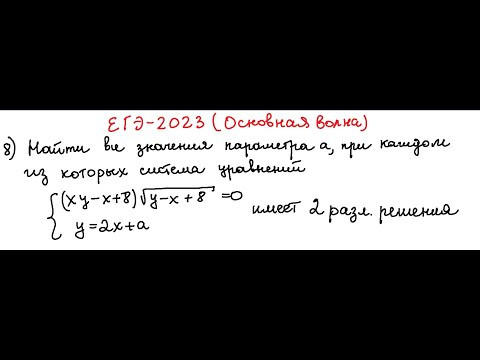 ЕГЭ-2023 (Основная волна)
8) Найти все значения параметра а, при каждом
из которых система уравнений
{(xy-x+8)√(y-x+8) =0
y=2x+a
имеет 2 разл. решения